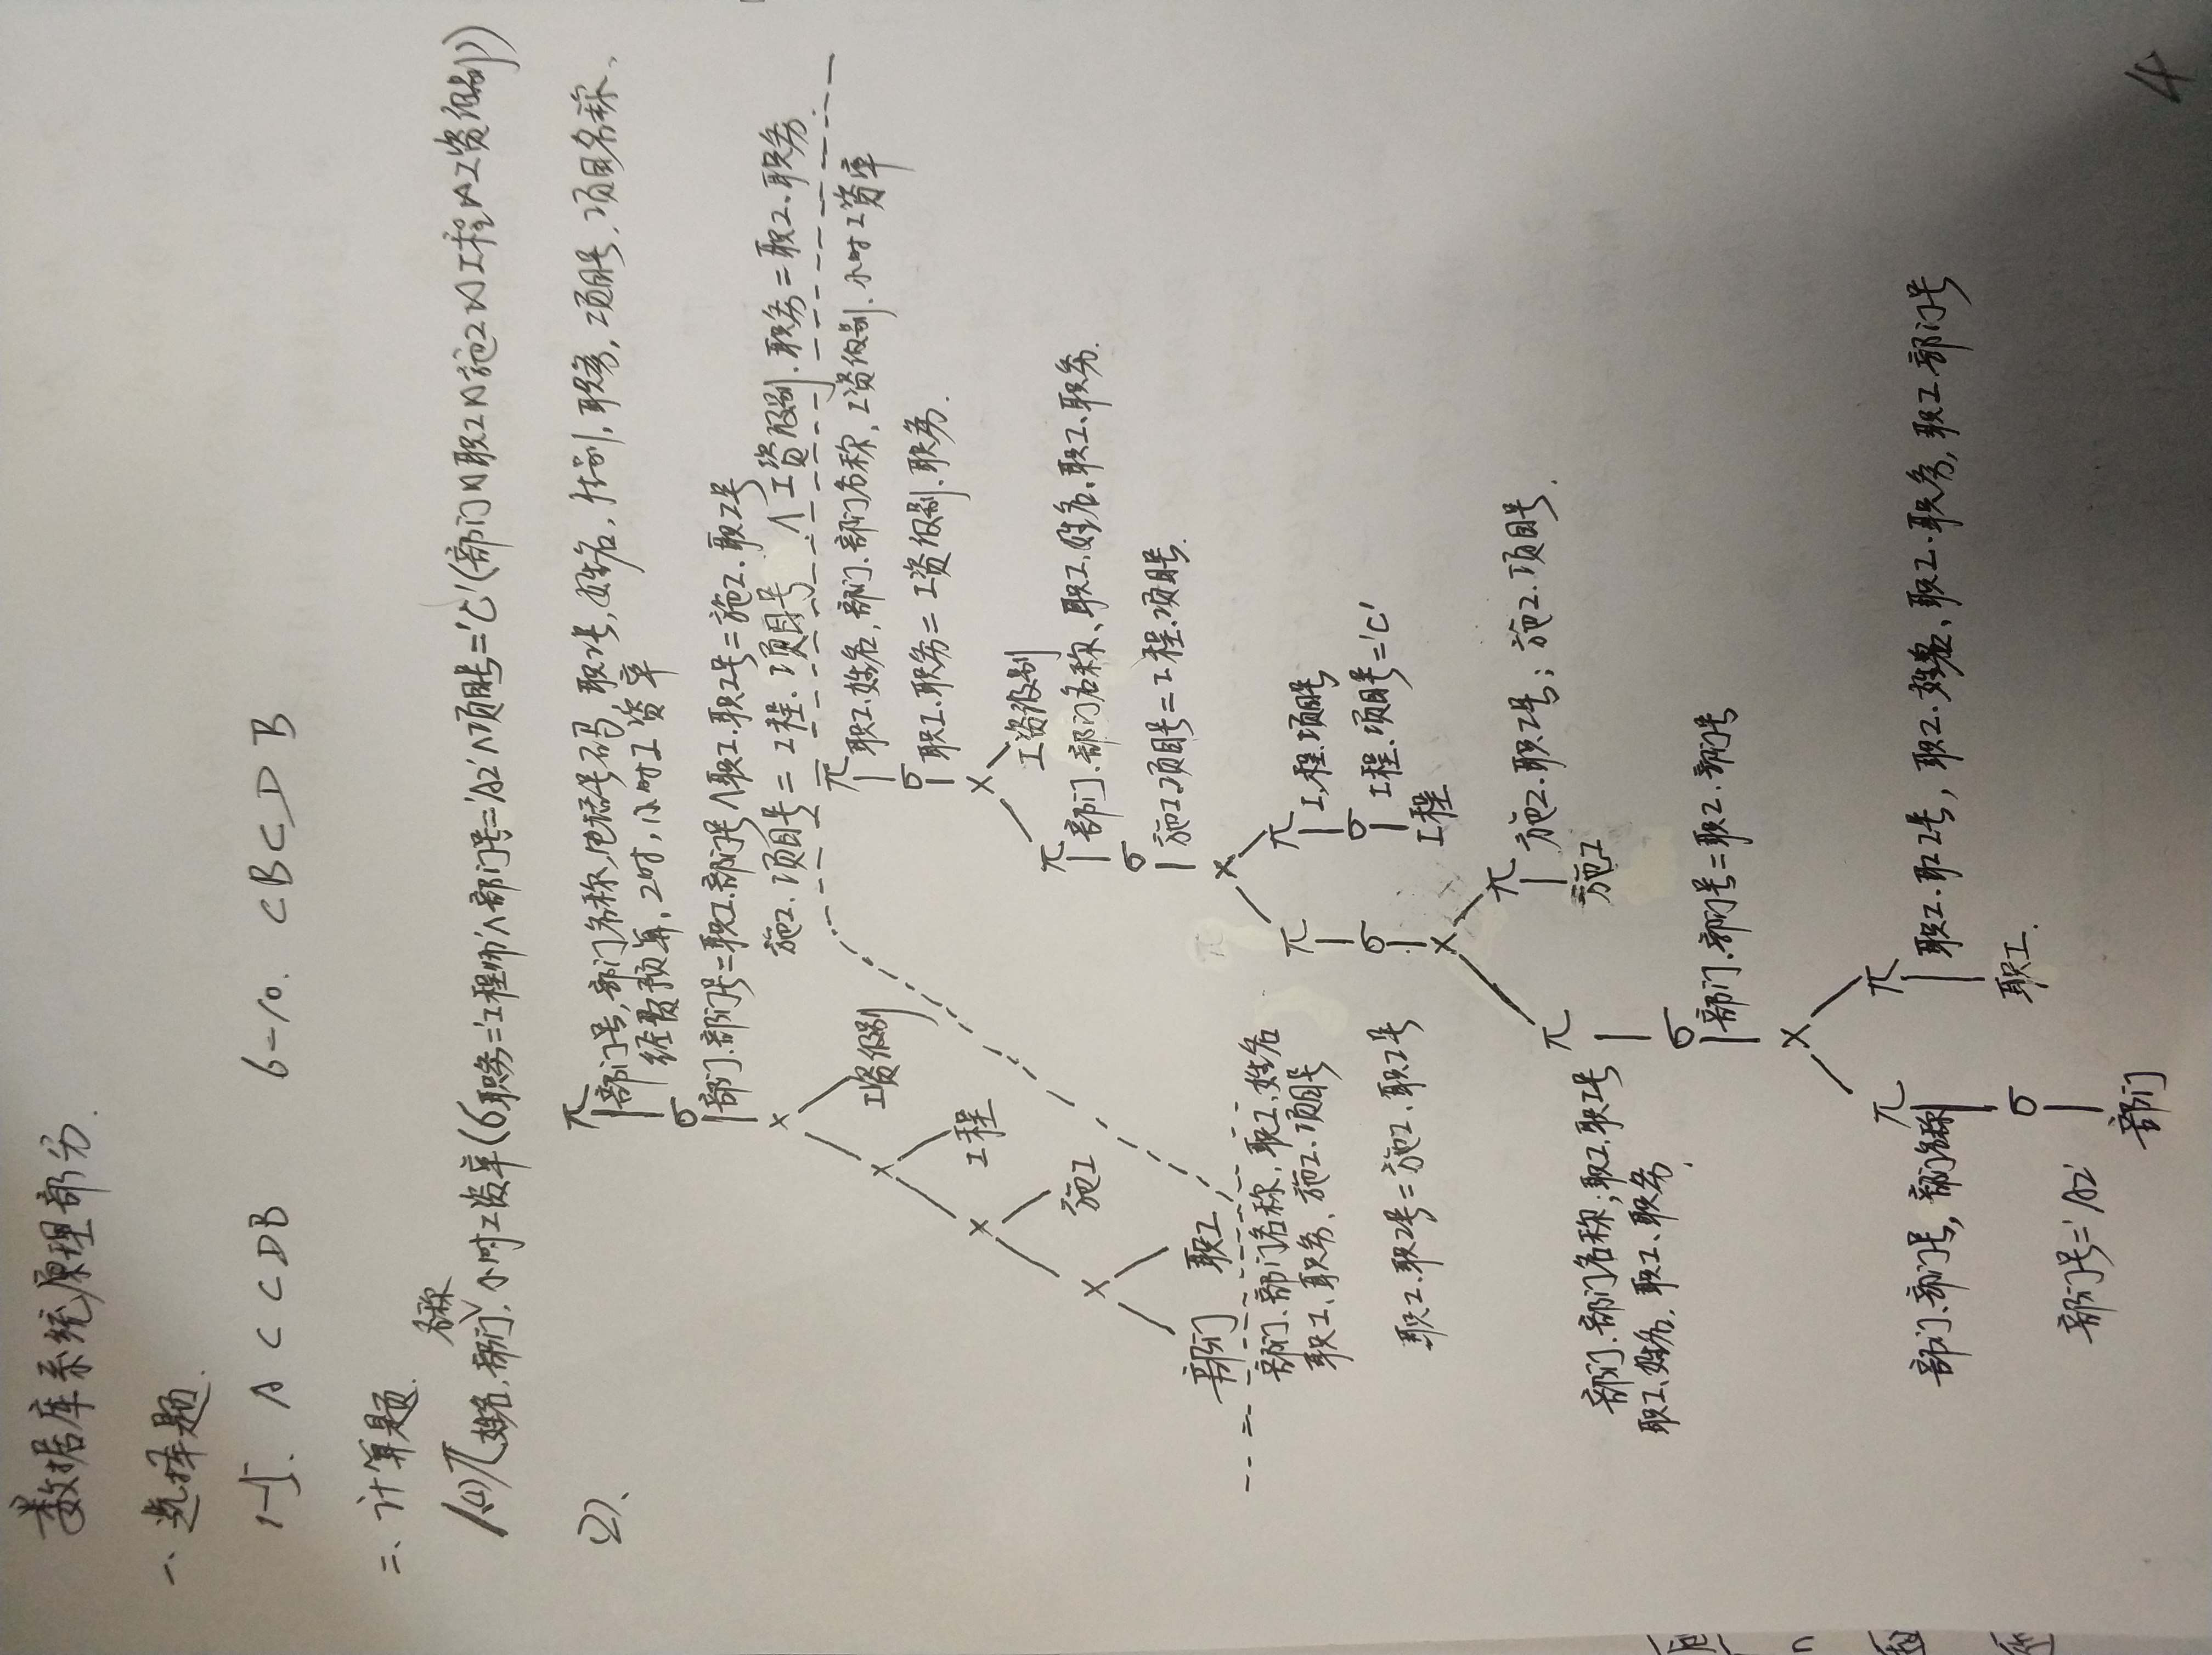 数据库系统原理部分.
一、选择题.
1-5. A C C D B 6-10. C B C D B
二、计算题.
名称
1.(1) π 姓名,部门,小时工资率(σ职务='工程师'∧部门号='A2'∧项目号='C'(部门⋈职工⋈施工⋈工程⋈工资级别))
(2)、
π
部门号,部门名称,电话号码,职工号,姓名,性别,职务,项目号,项目名称、
经费预算,工时,小时工资率
σ
部门.部门号=职工.部门号∧职工.职工号=施工.职工号
施工.项目号=工程.项目号 ∧工资级别.职务=职工.职务
×
工资级别
×
工程
×
施工
×
部门 职工
π
职工.姓名,部门.部门名称,工资级别.小时工资率
σ
职工.职务=工资级别.职务.
×
工资级别
π
部门.部门名称、职工.姓名、职工.职务.
σ
施工.项目号=工程.项目号.
×
部门.部门名称,职工.姓名
职工.职务、施工.项目号
π
π
工程.项目号
职工.职工号=施工.职工号
σ
σ
工程.项目号='C'
×
工程
π
施工.职工号;施工.项目号.
施工
π
部门.部门名称;职工.职工号
职工.姓名,职工.职务,
σ
部门.部门号=职工.部门号
×
π
π
部门.部门号,部门名称
职工.职工号,职工.姓名,职工.职务,职工.部门号
σ
职工.
部门号='A2'
部门
4